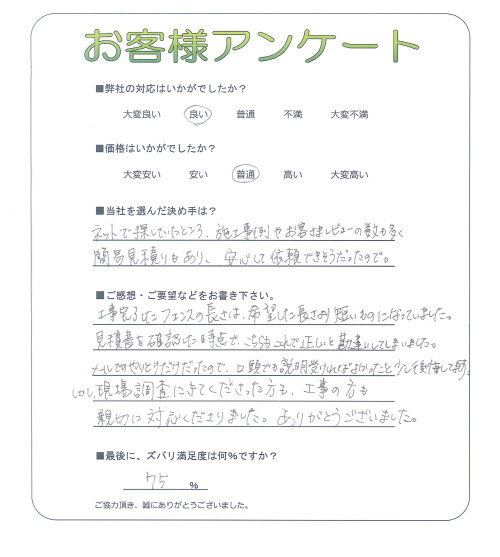 お客様アンケート
■弊社の対応はいかがでしたか？
大変良い 良い 普通 不満 大変不満
■価格はいかがでしたか？
大変安い 安い 普通 高い 大変高い
■当社を選んだ決め手は？
ネットで探していたところ、施工事例やお客さまレビューの数も多く
簡易見積りもあり、安心して依頼できそうだったので。
■ご感想・ご要望などをお書き下さい。
工事完了したフェンスの長さは、希望した長さより短いものになっていました。
見積書を確認した時点で、こちらもこれで正しいと勘違いしてしまいました。
メールでのやりとりだけだったので、口頭でも説明受ければよかったと少し後悔してます。
しかし、現場調査にきてくださった方も、工事の方も
親切に対応くださりました。ありがとうございました。
■最後に、ズバリ満足度は何％ですか？
75 %
ご協力頂き、誠にありがとうございました。